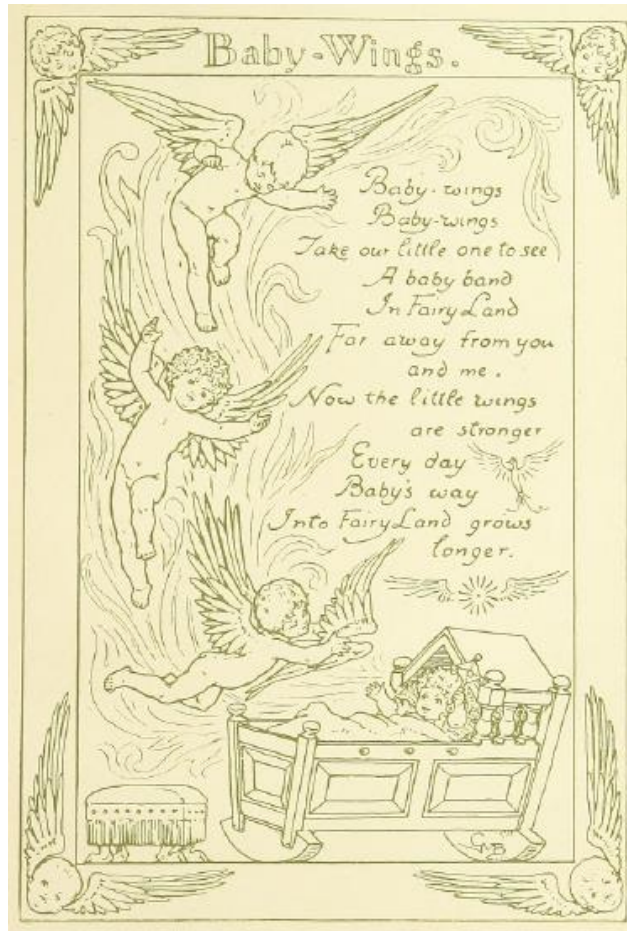 Baby-Wings.
Baby-wings
Baby-wings
Take our little one to see
A baby band
In Fairy Land
Far away from you
and me.
Now the little wings
are stronger
Every day
Baby's way
Into Fairy Land grows
longer.
GB